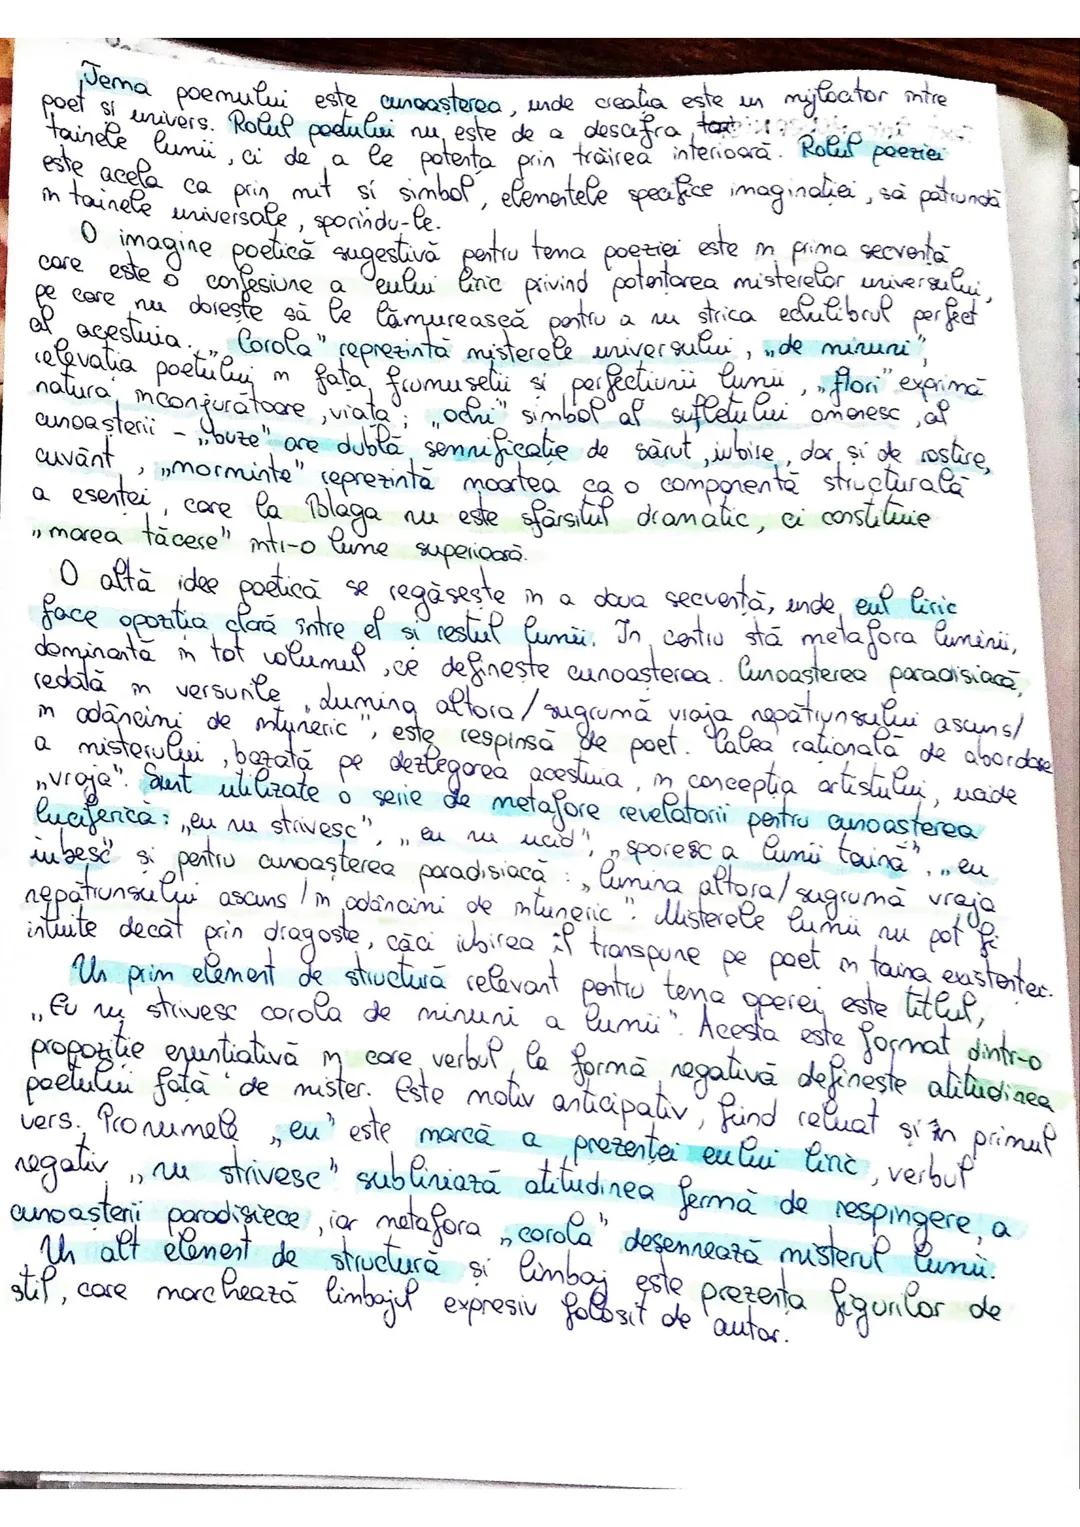 Tema poemului este cunoașterea, unde creația este un mijlocitor între
poet și univers. Rolul poetului nu este de a descifra
tainele lumii, ci de a le potența prin trăirea interioară. Rolul poeziei
este acela ca prin mit și simbol, elementele specifice imaginației, să pătrundă
în tainele universale, sporindu-le.
O imagine poetică sugestivă pentru tema poeziei este în prima secvență
care este o confesiune a eului liric privind potențarea misterelor universului,
pe care nu dorește să le lămurească pentru a nu strica echilibrul perfect
al acestuia. „Corola" reprezintă misterele universului, „de minuni",
relevația poetului în fața frumuseții și perfecțiunii lumii, „flori" exprimă
natura înconjurătoare, viața; „ochi" simbol al sufletului omenesc, al
cunoașterii - „buze" are dublă semnificație de sărut, iubire, dar și de rostire,
cuvânt, „morminte" reprezintă moartea ca o componentă structurală
a esenței, care la Blaga nu este sfârșitul dramatic, ci constituie
„marea tăcere" într-o lume superioară.
O altă idee poetică se regăsește în a doua secvență, unde eul liric
face opoziția clară între el și restul lumii. În centru stă metafora luminii,
dominantă în tot volumul, ce definește cunoașterea. Cunoașterea paradisiacă,
redată în versurile „Lumina altora/sugrumă vraja nepătrunsului ascuns/
în adâncimi de întuneric", este respinsă de poet. Calea rațională de abordare
a misterului, bazată pe dezlegarea acestuia, în concepția artistului, ucide
„vraja". Sunt utilizate o serie de metafore revelatorii pentru cunoașterea
luciferică: „eu nu strivesc", „eu nu ucid", „sporesc a lumii taină", „eu
iubesc" și pentru cunoașterea paradisiacă: „lumina altora/sugrumă vraja
nepătrunsului ascuns/în adâncimi de întuneric". Misterele lumii nu pot fi
intuite decât prin dragoste, căci iubirea îl transpune pe poet în taina existenței.
Un prim element de structură relevant pentru tema operei este titlul,
„Eu nu strivesc corola de minuni a lumii". Acesta este format dintr-o
propoziție enunțiativă în care verbul la formă negativă definește atitudinea
poetului față de mister. Este motiv anticipativ, fiind reluat și în primul
vers. Pronumele „eu" este marcă a prezenței eului liric, verbul
negativ „nu strivesc" subliniază atitudinea fermă de respingere a
cunoașterii paradisiece, iar metafora „corola" desemnează misterul lumii.
Un alt element de structură și limbaj este prezența figurilor de
stil, care marchează limbajul expresiv folosit de autor.